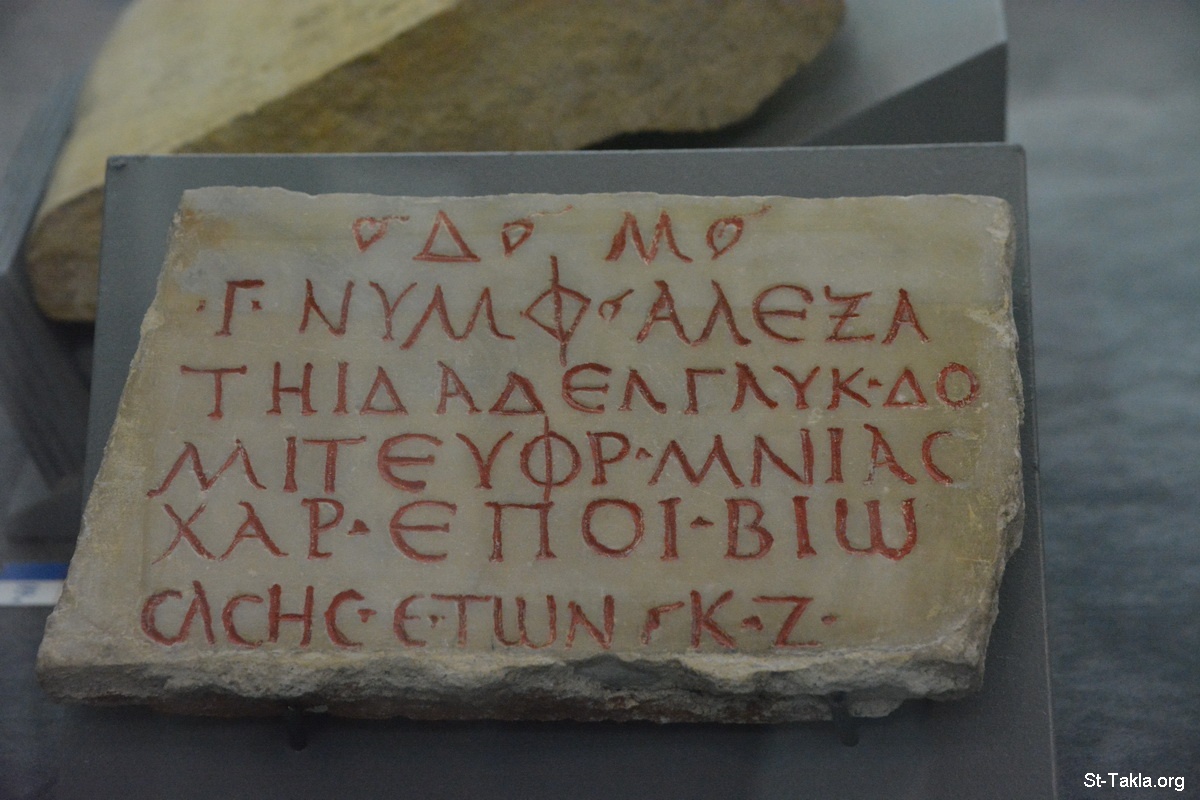 Δ Μ
·Γ· ΝΥΜΦ ΑΛΕΖΑ
ΤΗΙΔ ΑΔΕΛ ΓΛΥΚ·ΔΟ
ΜΙΤΕΥΦΡ·ΜΝΙΑϹ
ΧΑΡ·ΕΠΟΙ·ΒΙѠ
ϹΑϹΗϹ·Ε·ΤѠΝ Κ·Ζ·
St-Takla.org